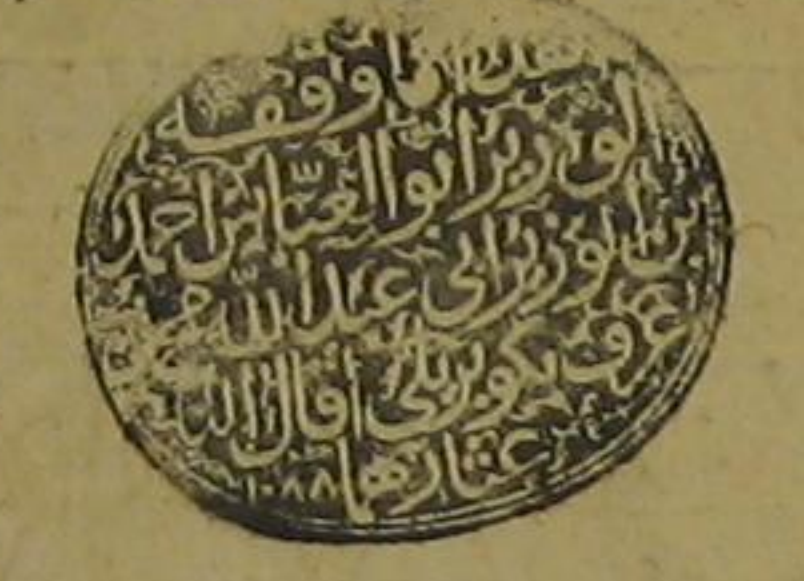 هذا مما وقفه
الوزير ابو العباس احمد
بن الوزير ابي عبد الله محمد
عرف بكوپريلي اقال الله
عثارهما
١٠٨٨